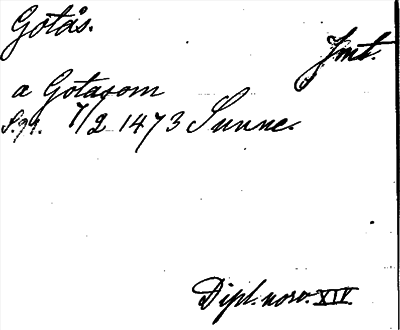 Gotås.
Jmt.
a Gotasom
S. 91. 7/2 1473 Sunne.
Dipl. norv. XIV.